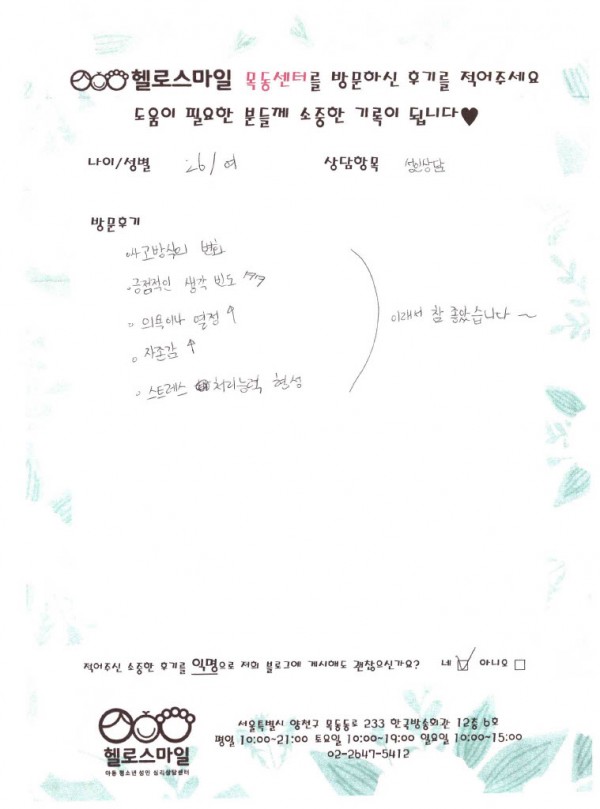 헬로스마일 목동센터를 방문하신 후기를 적어주세요
도움이 필요한 분들께 소중한 기록이 됩니다♥
나이/성별 26/여 상담항목 성인상담
방문후기
사고방식의 변화
긍정적인 생각 빈도 ↑↑↑
의욕이나 열정 ↑
자존감 ↑
스트레스 처리능력 형성
이래서 참 좋았습니다~
적어주신 소중한 후기를 익명으로 저희 블로그에 게시해도 괜찮으신가요? 네 ☑ 아니오 □
헬로스마일
아동 청소년 성인 심리상담센터
서울특별시 양천구 목동동로 233 한국방송회관 12층 6호
평일 10:00~21:00 토요일 10:00~19:00 일요일 10:00~15:00
02-2647-5412